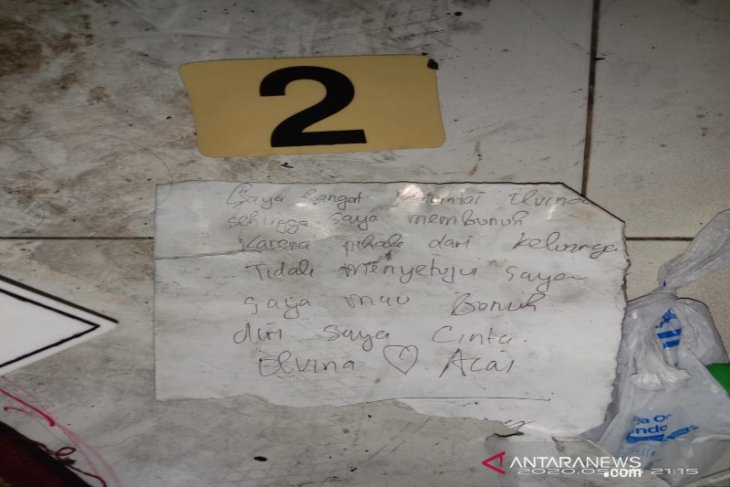 2
Saya Sangat Elvina
sehingga saya membunuh
Karena pihak dari Keluarga
Tidak menyetujui saya
saya mau Bonuh
diri saya Cinta.
Elvina ♡ Acai
ANTARANEWS
.com